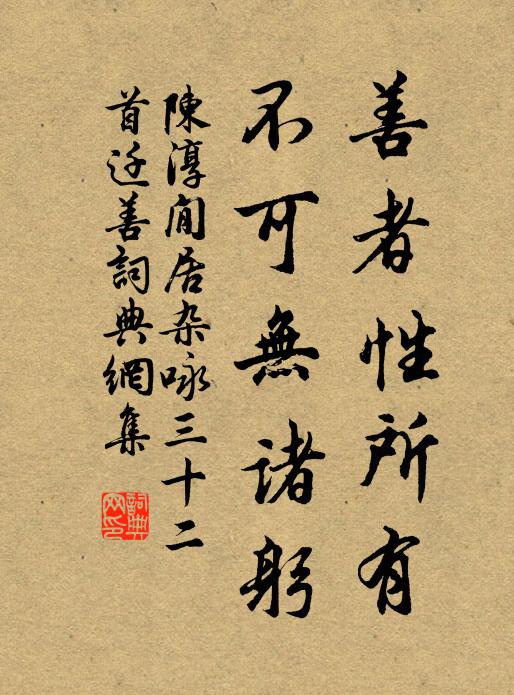 善者性所有
不可無諸躬
陳淳閒居杂咏三十二
首迁善詞典網集
詞典网印